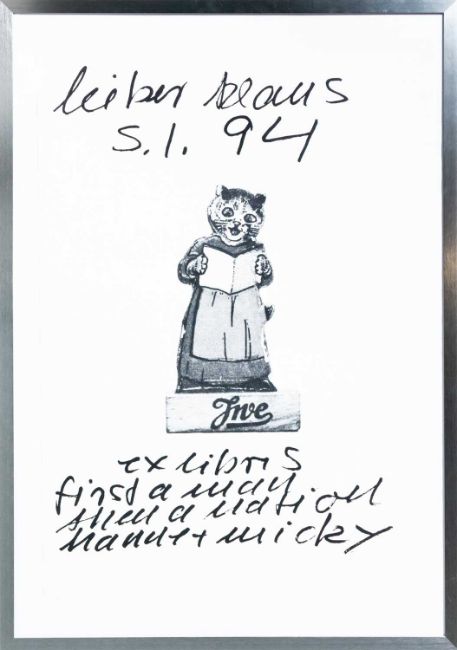 lieber klaus
5.1. 94
Jwe
exlibris
first a man
then a nation
hanne + micky